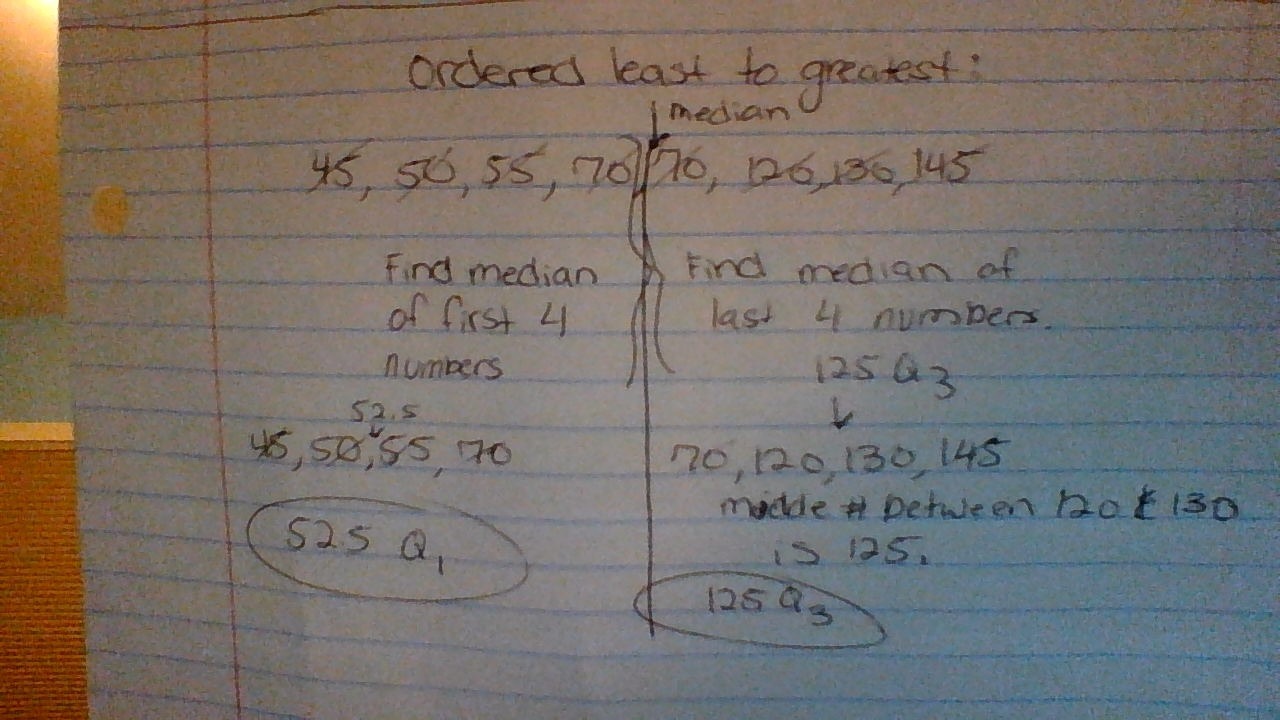 Ordered least to greatest:
median
45, 50, 55, 70 70, 120, 130, 145
Find median
of first 4
numbers
52.5
45, 50, 55, 70
525 Q1
Find median of
last 4 numbers.
125 Q3
70, 120, 130, 145
middle # between 120 & 130
is 125.
125 Q3